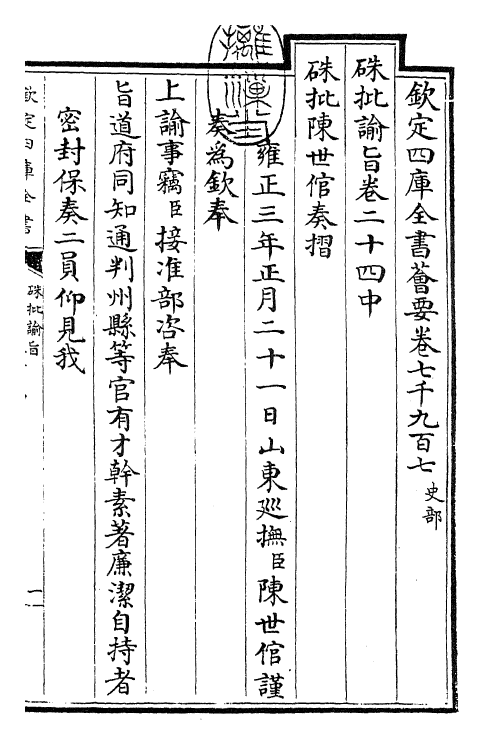 欽定四庫全書薈要卷七千九百七 史部
硃批諭旨卷二十四中
硃批陳世倌奏摺
雍正三年正月二十一日山東廵撫臣陳世倌謹
奏為欽奉
上諭事竊臣接准部咨奉
旨道府同知通判州縣等官有才幹素著廉潔自持者
密封保奏二員仰見我
欽定四庫全書
硃批諭旨